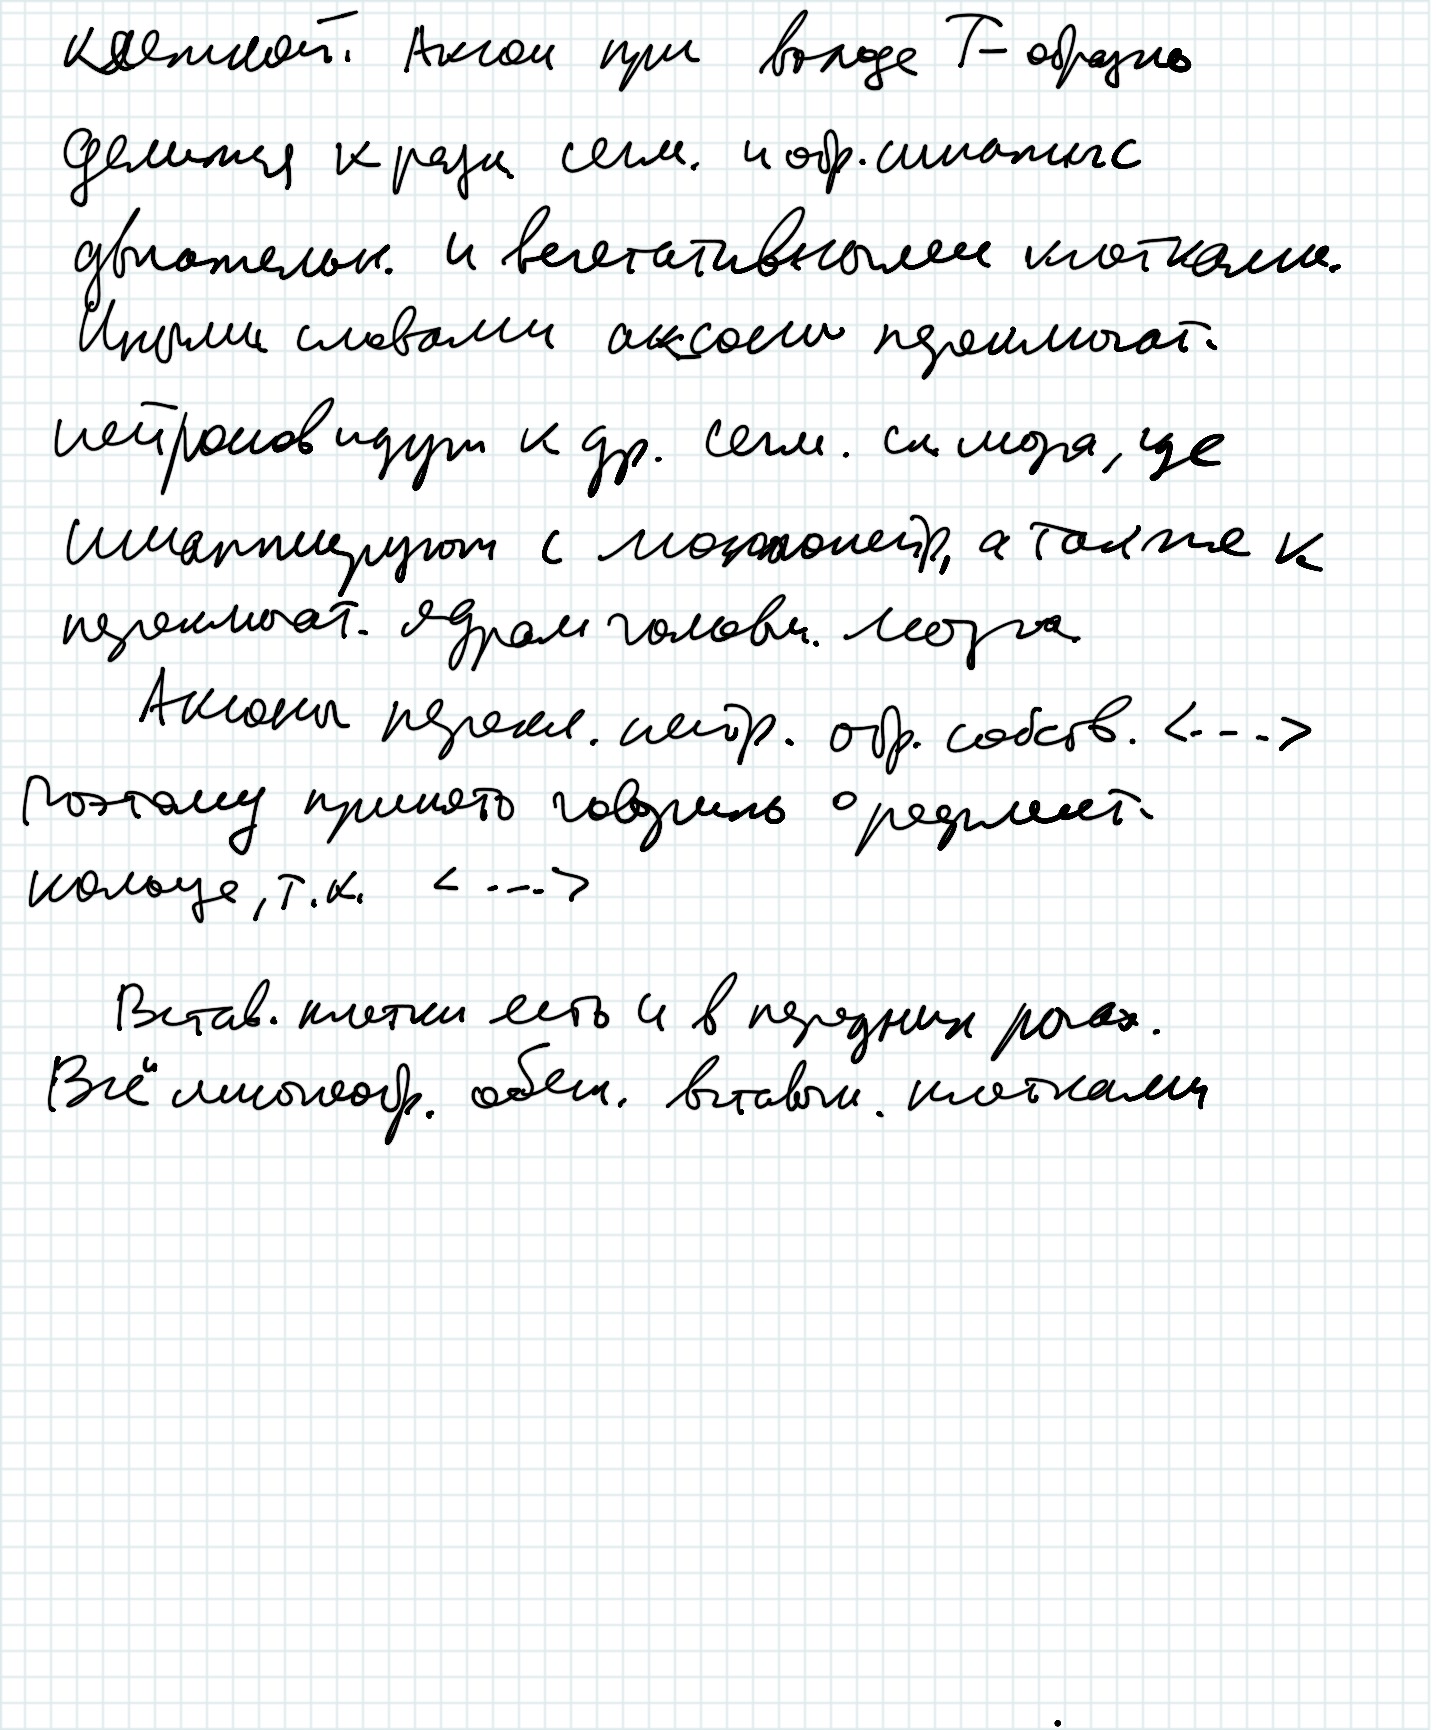 клеткой. Аксон при входе Т-образно
делится к разн. сегм. и обр. синапсы с
двигательн. и вегетативными клетками.
Иными словами аксоны переключат.
нейронов идут к др. сегм. сп мозга, где
синаптируют с мотонейр, а также к
переключат. ядрам головн. мозга
Аксоны перекл. нейр. обр. собств. <...>
Поэтому принято говорить о рефлект.
кольце, т.к. <...>
Встав. клетки есть и в передних рогах.
Всё многообр. обесп. вставочн. клетками